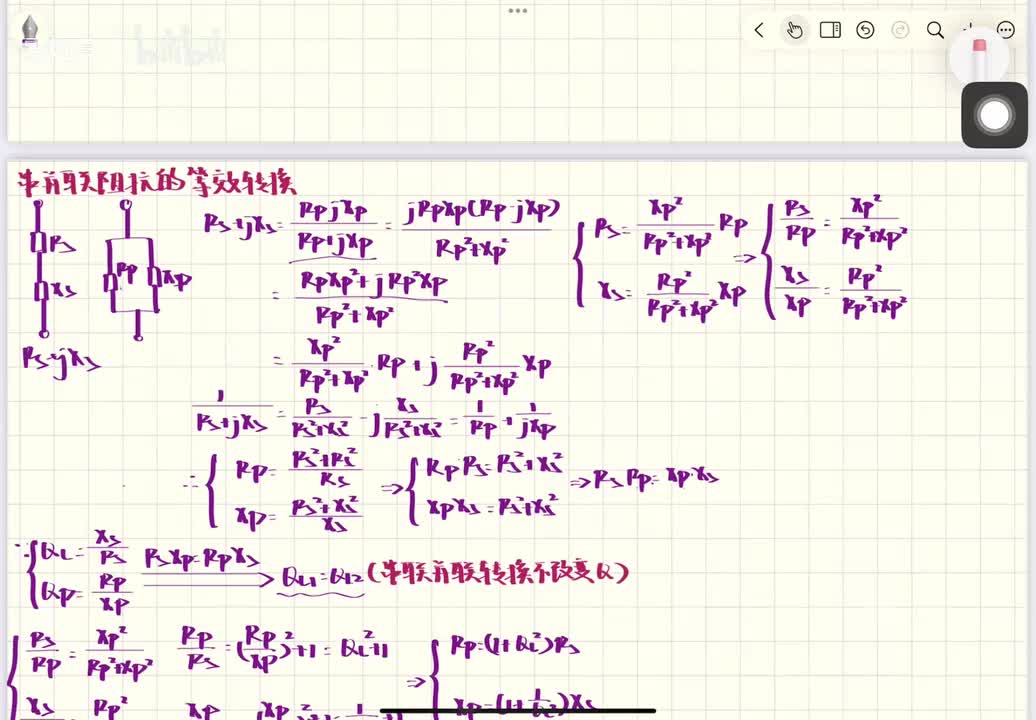 串并联阻抗的等效转换
Rs+jXs = RpjXp/(Rp+jXp) = jRpXp(Rp-jXp)/(Rp²+Xp²)
= (RpXp²+jRp²Xp)/(Rp²+Xp²)
= Xp²/(Rp²+Xp²)·Rp+j Rp²/(Rp²+Xp²) Xp
{ Rs = Xp²/(Rp²+Xp²) Rp
Xs = Rp²/(Rp²+Xp²) Xp
⇒ { Rs/Rp = Xp²/(Rp²+Xp²)
Xs/Xp = Rp²/(Rp²+Xp²)
Rs
Xs
Rp
Xp
Rs+jXs
1/(Rs+jXs) = Rs/(Rs²+Xs²) - j Xs/(Rs²+Xs²) = 1/Rp + 1/jXp
∴ { Rp = (Rs²+Rs²)/Rs
Xp = (Rs²+Xs²)/Xs
⇒ { RpRs = Rs²+Xs²
XpXs = Rs²+Xs²
⇒ RsRp = Xp·Xs
∵ { QL = Xs/Rs
Qp = Rp/Xp
RsXp = RpXs
QL1 = QL2 (串联并联转换不改变Q)
{ Rs/Rp = Xp²/(Rp²+Xp²)
Rp/Rs = (Rp/Xp)²+1 = QL²+1
⇒ { Rp = (1+QL²)Rs
Xs
Rp²
Xp
Xp = (1+1/QL²)Xs